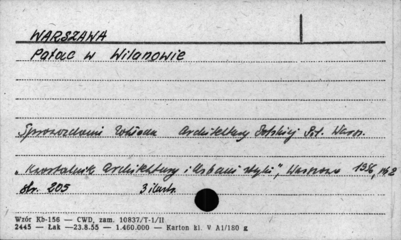 WARSZAWA
Pałac w Wilanowie
Sprawozdanie Zakładu Architektury Polskiej Pol. Warsz.
"Kwartalnik Architektury i Urbanistyki", Warszawa 1956, nr 2
str. 205 3 ilustr.
Wzór Kb-156 — CWD, zam. 10837/T-1/II
2445 — Łak —23.8.55 — 1.460.000 — Karton kl. V A1/180 g